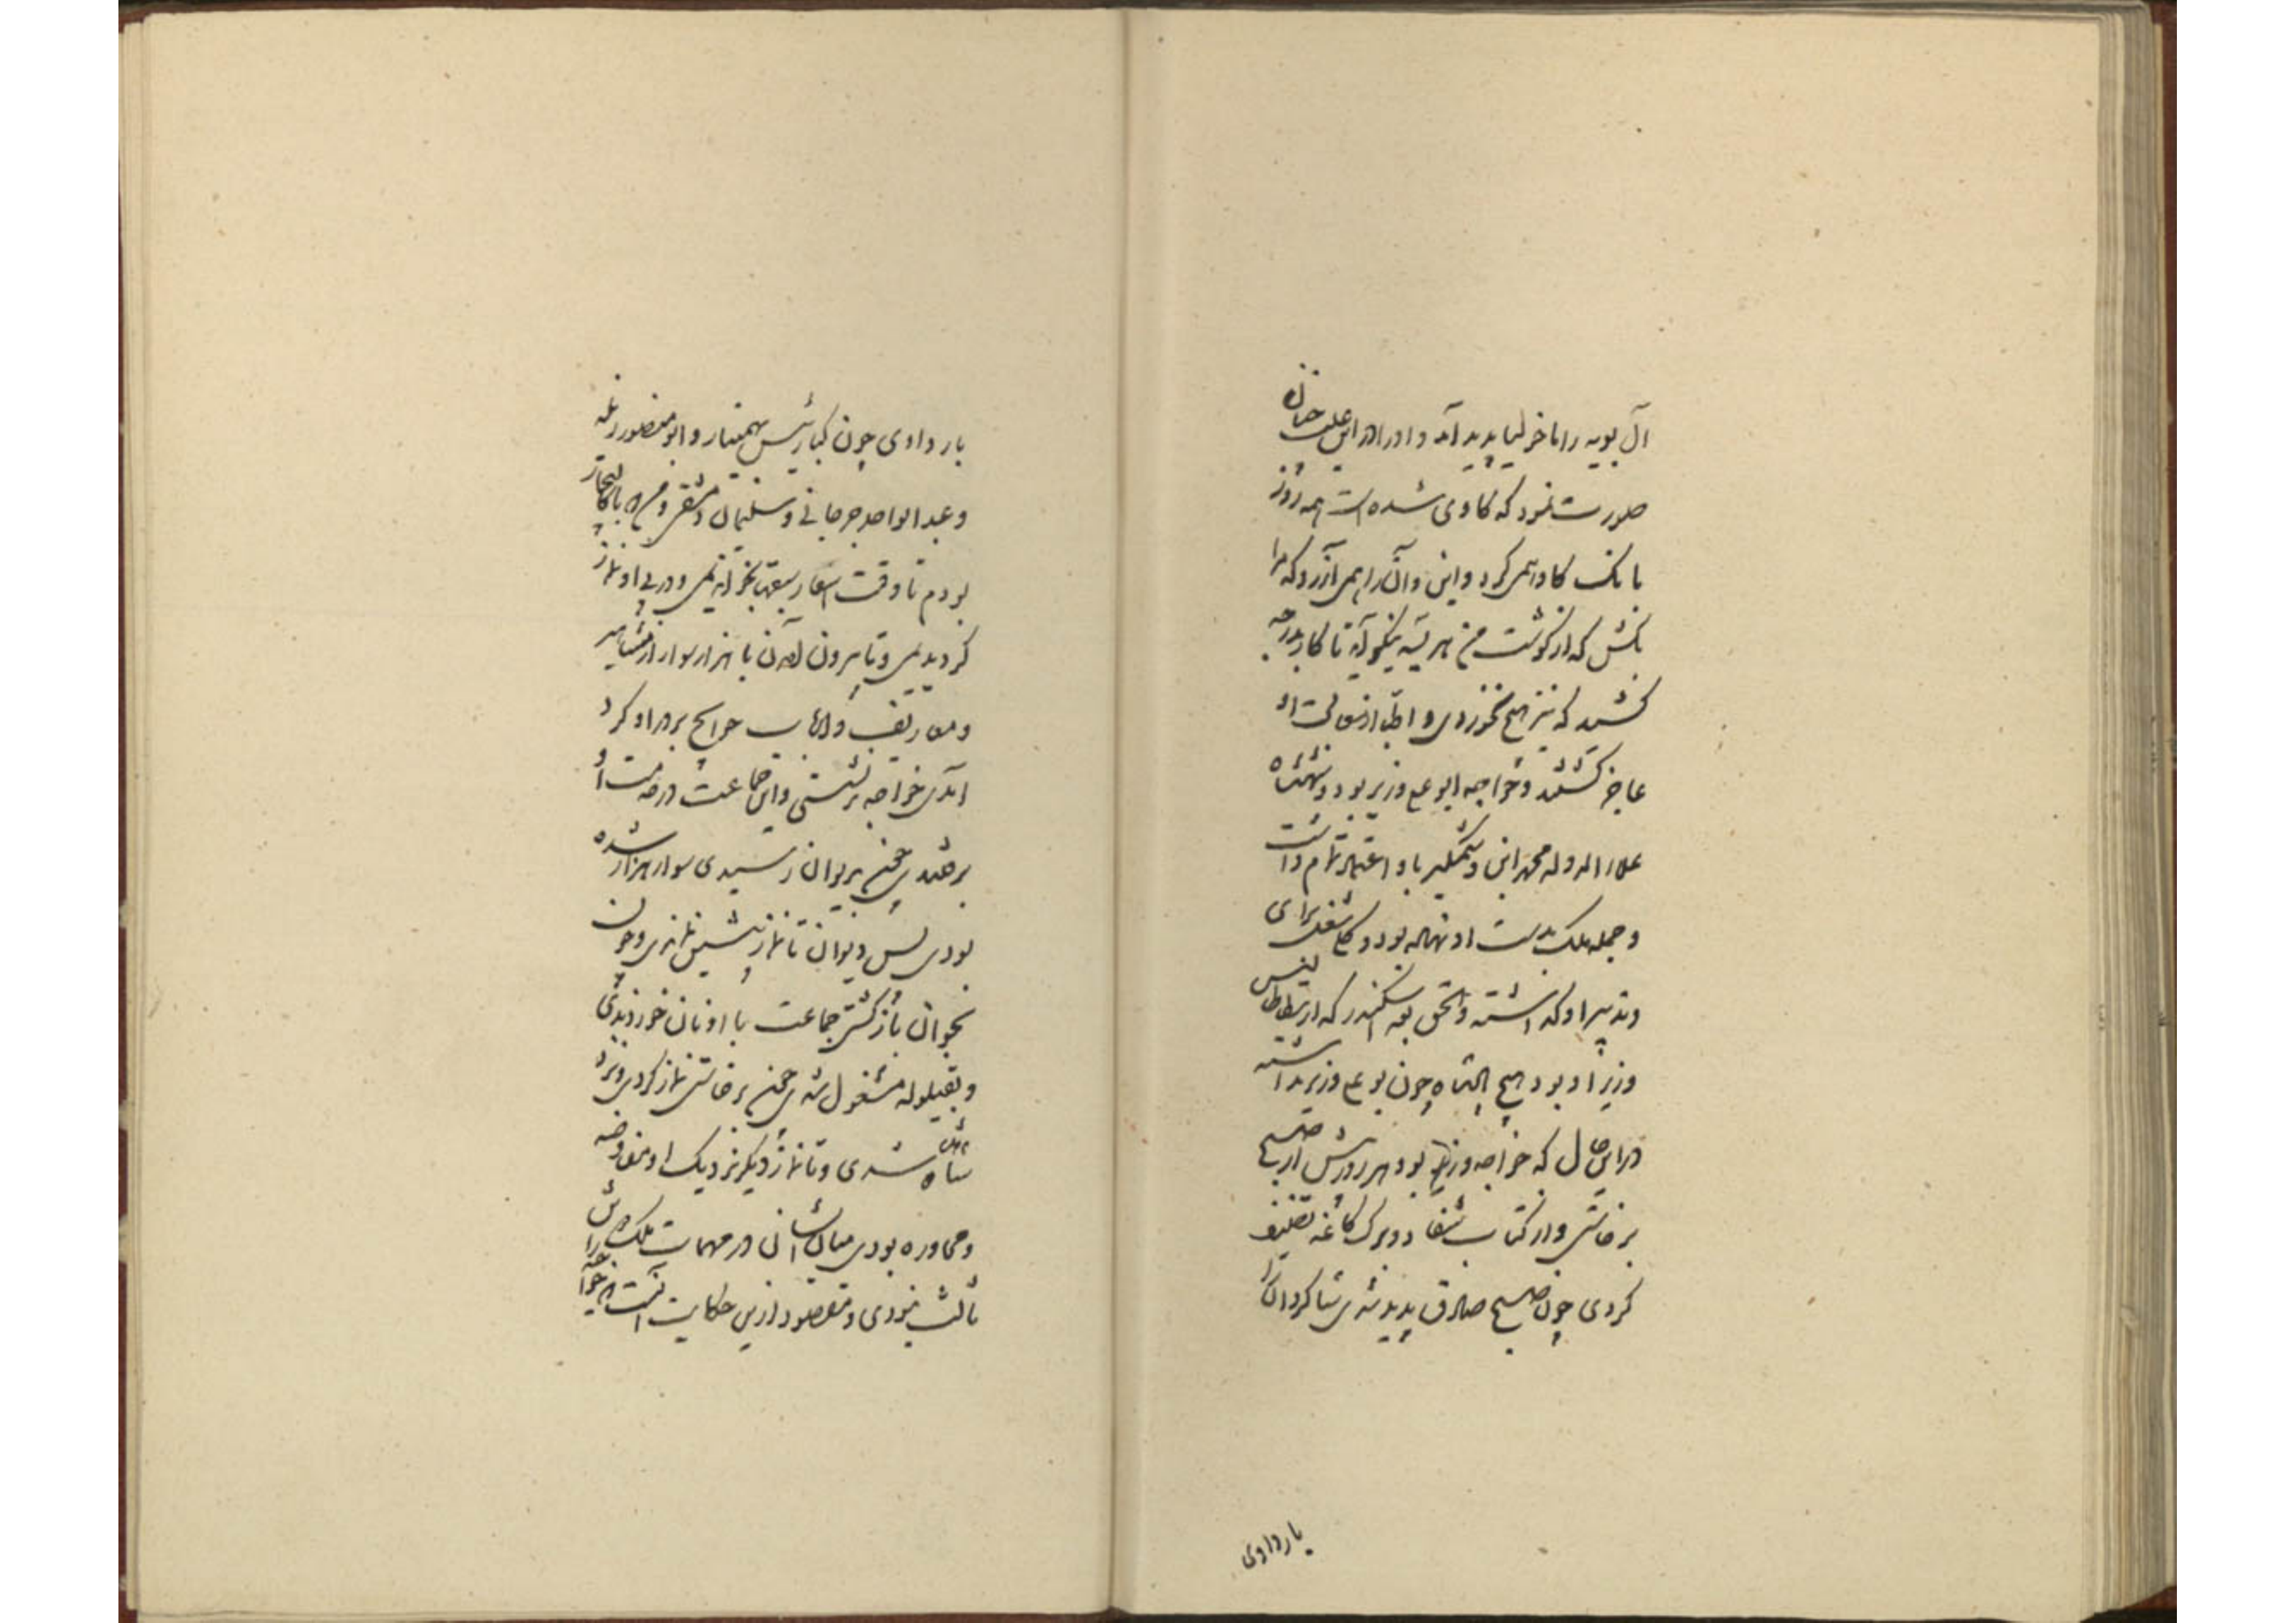 آل بویه را مالخولیا پدید آمد و او را در این علت چنان
صورت نمود که گاوی شده است همه روز
بانگ گاو همی کرد و این و آن را همی آزرد که مرا
بکش که از گوشت من هریسه نیکو آید تا کار بدرجه
کشید که نیز هیچ نخوردی و اطبا از معالجت او
عاجز گشتند و خواجه ابو علی وزیر بود و شهنشاه
علاء الدوله محمد ابن وشمگیر باو اعتماد تمام داشت
و جمله ملک بدست او نهاده بود و کلی شغل برای
و تدبیر او گذاشته و الحق بعد اسکندر که ارسطاطالیس
وزیر او بود هیچ پادشاه چون بو علی وزیر نداشته
در این حال که خواجه وزیر بود هر روز پیش از صبح
برخاستی و از کتاب شفا دو برگ کاغذ تصنیف
کردی چون صبح صادق پدید شدی شاگردان را
بار دادی
بار دادی چون کیا رئیس بهمنیار و ابو منصور زیله
و عبد الواحد جرجانی و سلیمان دمشقی و من که باکالیجار
بودم تا وقت اسفار سبقها بخواندیمی و در پی او نماز
کردیمی و تا بیرون آمدن با هزار سوار از مشاهیر
و معاریف و ارباب حوایج بر در او گرد
آمدی خواجه برنشستی و این جماعت در خدمت او
برفتندی چون بدیوان رسیدی سوار هزار شده
بودی پس دیوان تا نماز پیشین بماندی و چون
بخوان بازگشتی جماعت با او نان خوردندی
و بقیلوله مشغول شدی چون برخاستی نماز کردی و نزد
شاهنشاه شدی و تا نماز دیگر نزدیک او مفاوضه
و محاوره بودی میان ایشان در مهمات ملک هرگز
ثالث نبودی و مقصود ازین حکایت آنست که خواجه را